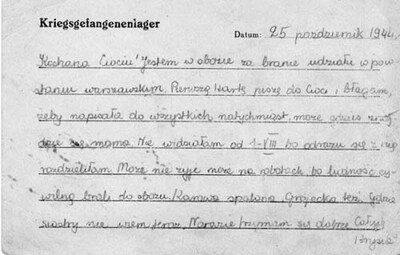 Kriegsgefangenenlager
Datum: 25 październik 1944.
Kochana Ciociu! Jestem w obozie za branie udziału w pow-
staniu warszawskim. Pierwszą kartę piszę do Cioci i błagam,
żeby napisała do wszystkich natychmiast, może gdzieś znaj-
dzie się mama. Nie widziałam od 1-VIII bo odrazu się z nią
rozdzieliłam. Może nie żyje może na robotach, bo ludność cy-
wilną brali do obozu. Kanwa spalona Grójecka też. Gdzie
siostry nie wiem teraz. Narazie trzymam się dobrze Całuję